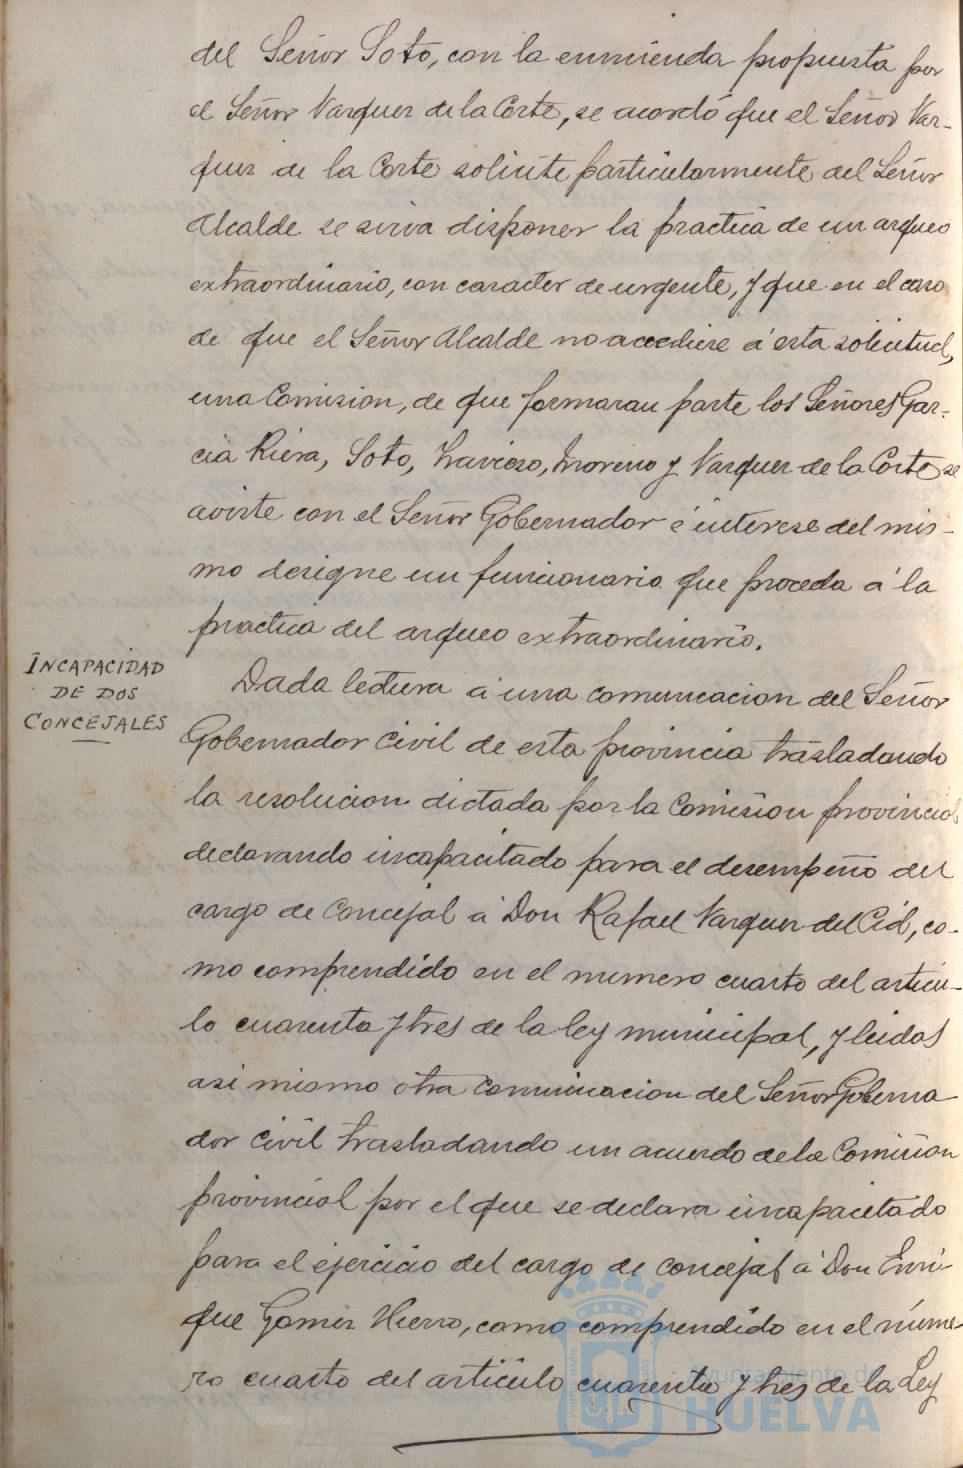 del Señor Soto, con la enmienda propuesta por
el Señor Vazquez de la Corte, se acordó que el Señor Vaz-
quez de la Corte solicite particularmente del Señor
Alcalde se sirva disponer la practica de un arqueo
extraordinario, con caracter de urgente, y que en el caso
de que el Señor Alcalde no accediese á esta solicitud,
una Comision, de que formaran parte los Señores Gar-
cia Riera, Soto, Travieso, Moreno y Vazquez de la Corte se
aviste con el Señor Gobernador é interese del mis-
mo designe un funcionario que proceda á la
practica del arqueo extraordinario.
INCAPACIDAD
DE DOS
CONCEJALES
Dada lectura á una comunicacion del Señor
Gobernador Civil de esta provincia trasladando
la resolucion dictada por la Comision provincial
declarando incapacitado para el desempeño del
cargo de Concejal á Don Rafael Vazquez del Cid, co-
mo comprendido en el numero cuarto del articu-
lo cuarenta y tres de la ley municipal, y leidas
asi mismo otra comunicacion del Señor Goberna
dor Civil trasladando un acuerdo de la Comision
provincial por el que se declara incapacitado
para el ejercicio del cargo de concejal á Don Enri-
que Gomez Hierro, como comprendido en el núme-
ro cuarto del artículo cuarenta y tres de la Ley
Ayuntamiento de
HUELVA